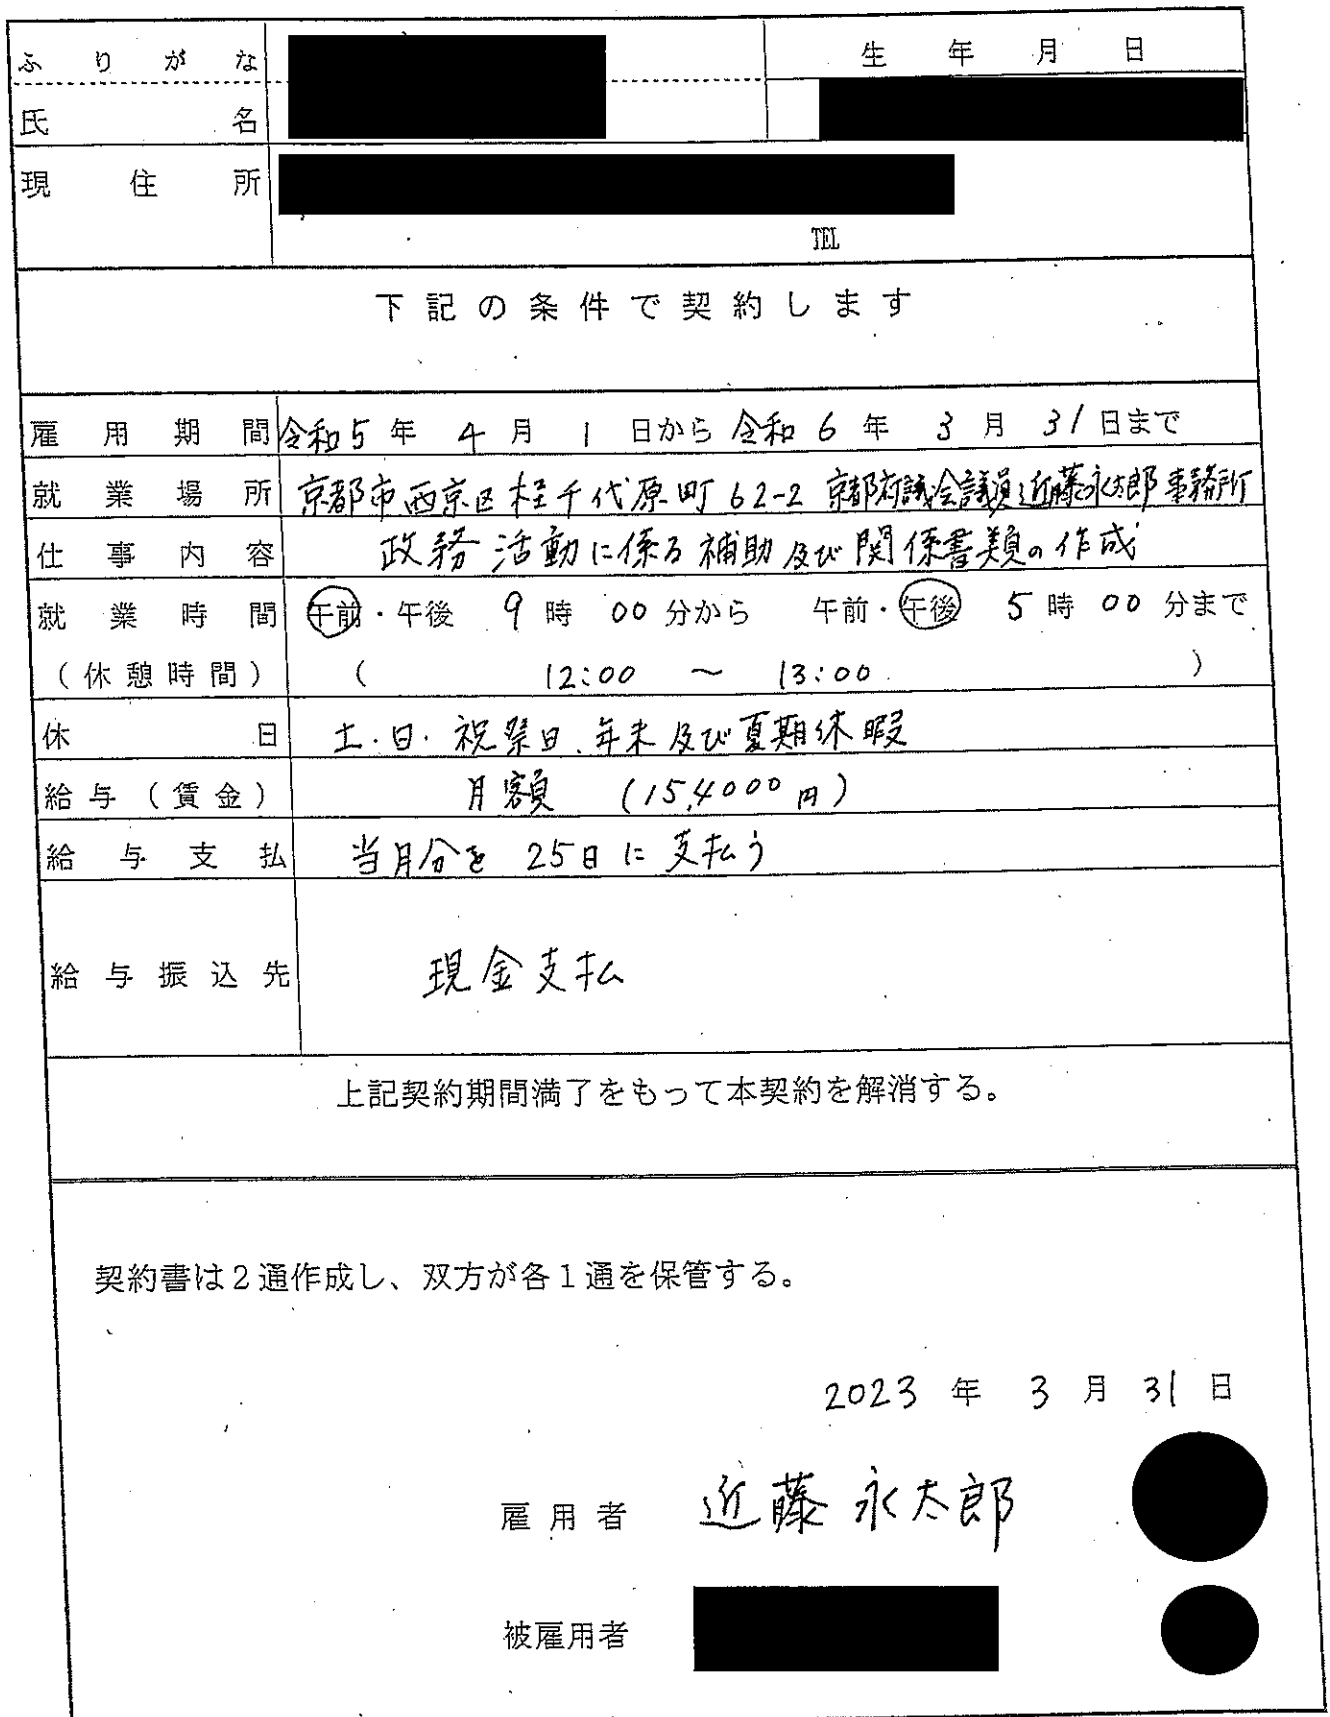 ふりがな
生年月日
氏名
現住所
TEL
下記の条件で契約します
雇用期間 令和5年 4月 1日から 令和6年 3月 31日まで
就業場所 京都市西京区桂千代原町62-2 京都府議会議員近藤永太郎事務所
仕事内容 政務活動に係る補助及び関係書類の作成
就業時間 午前・午後 9時 00分から 午前・午後 5時 00分まで
(休憩時間) ( 12:00 ～ 13:00 )
休日 土・日・祝祭日、年末及び夏期休暇
給与(賃金) 月額 (15,4000円)
給与支払 当月分を 25日に支払う
給与振込先 現金支払
上記契約期間満了をもって本契約を解消する。
契約書は2通作成し、双方が各1通を保管する。
2023年 3月 31日
雇用者 近藤 永太郎
被雇用者